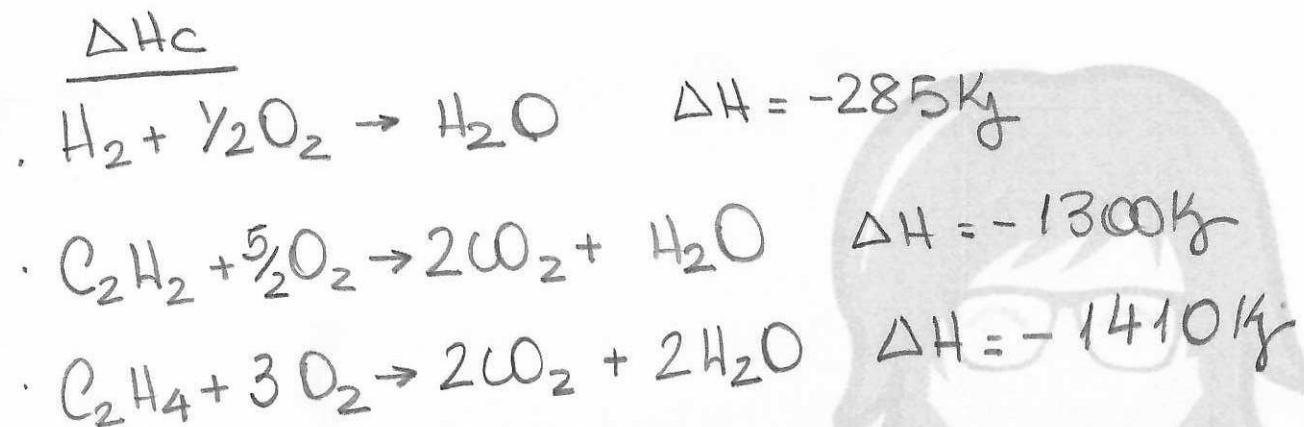 ΔHc
. H₂ + ½O₂ → H₂O ΔH = -285Kj
. C₂H₂ + 5/2O₂ → 2CO₂ + H₂O ΔH = -1300Kj
. C₂H₄ + 3O₂ → 2CO₂ + 2H₂O ΔH = -1410Kj